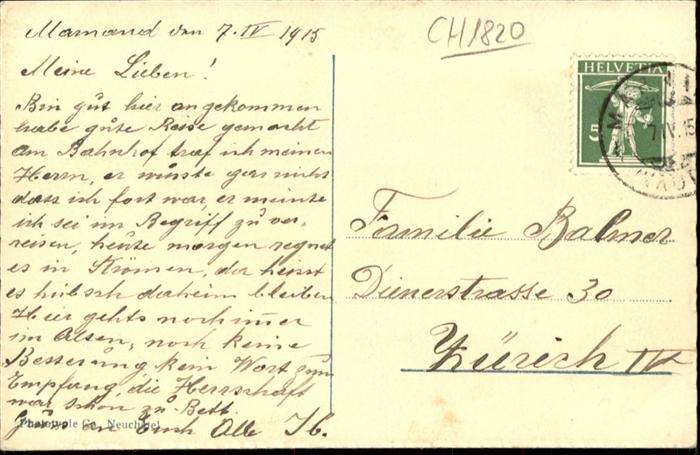 Mamand den 7. IV 1915
Meine Lieben!
Bin gut hier angekommen
habe gute Reise gemacht
am Bahnhof traf ich meinen
Herrn, er wüste gar nicht
dass ich fort war, er meinte
ich sei im Begriff zu ver-
reisen, heute morgen regnet
es in Strömen, da heisst
es hübsch daheim bleiben
Hier gehts noch immer
im Alten, noch keine
Besserung kein Wort zum
Empfang, die Herrschaft
war schon zu Bett.
Gruss an Euch Alle
Photopole Co., Neuchâtel
CH1820
HELVETIA
5
7.IV.15
Familie Balmer
Dienerstrasse 30
Zürich IV